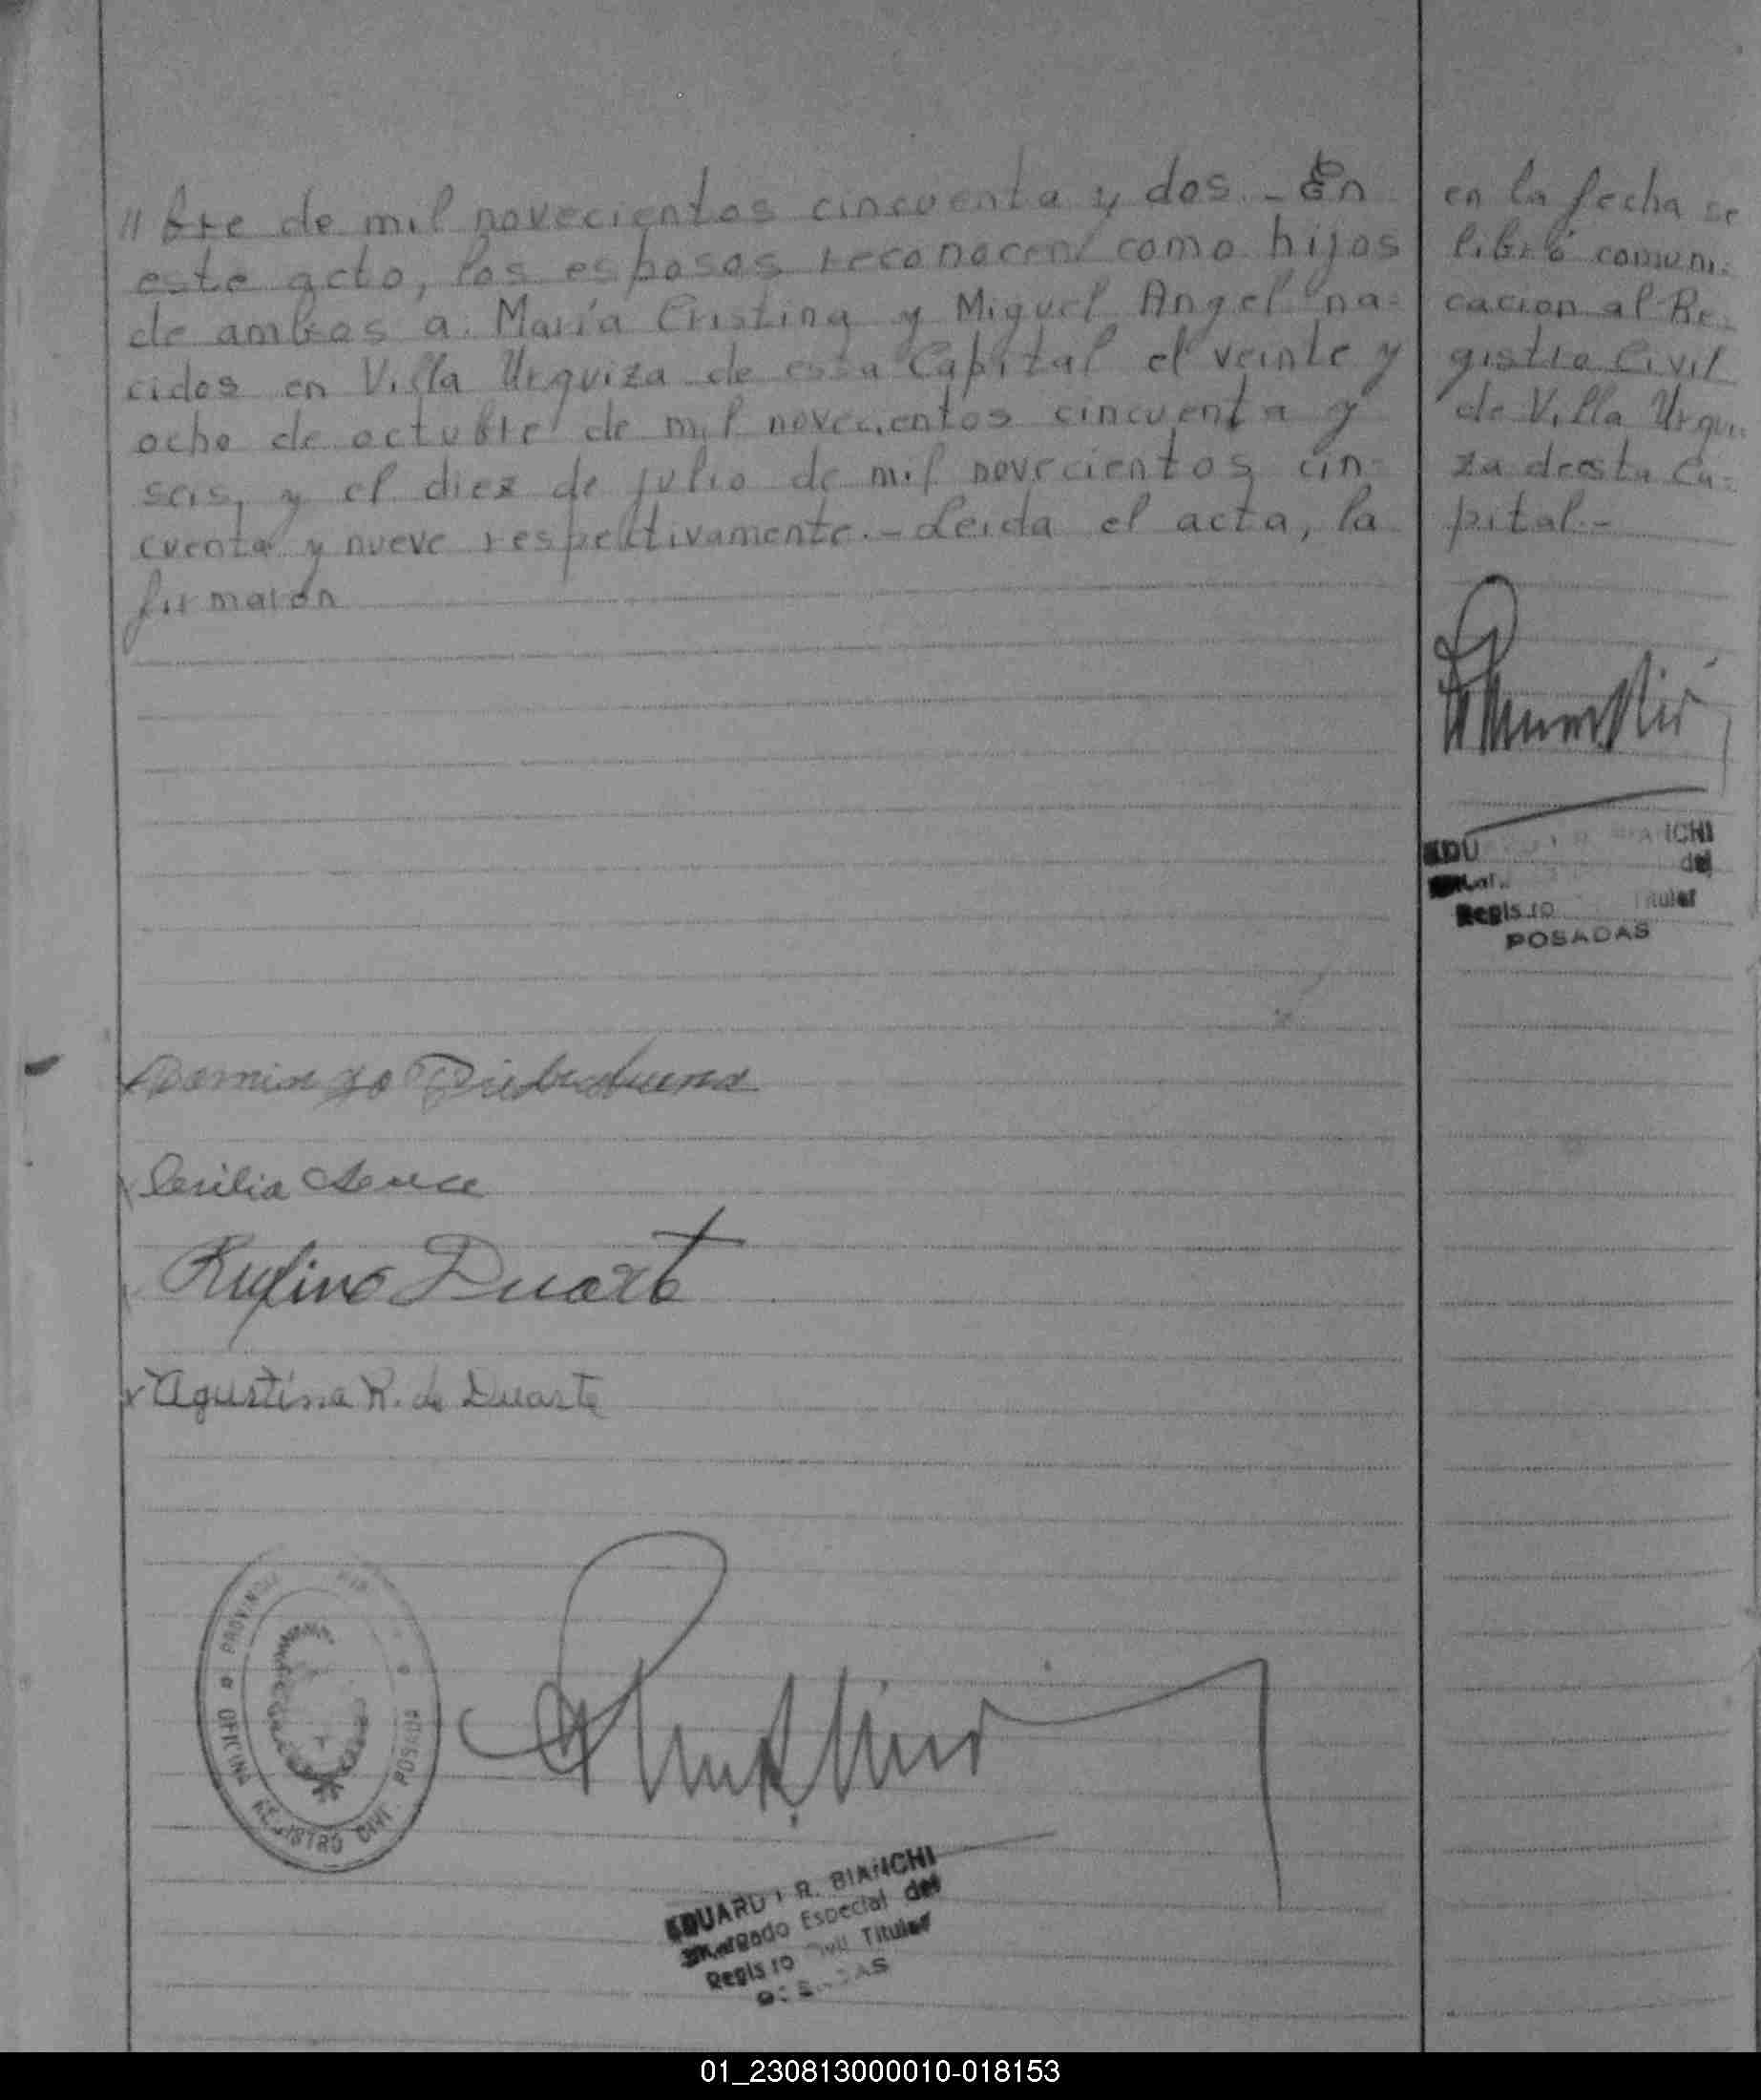 // bre de mil novecientos cincuenta y dos.- En
este acto, los esposos reconocen como hijos
de ambos a: María Cristina y Miguel Angel na=
cidos en Villa Urquiza de esta Capital el veinte y
ocho de octubre de mil novecientos cincuenta y
seis, y el diez de julio de mil novecientos cin=
cuenta y nueve respectivamente.- Leida el acta, la
firmaron
en la fecha se
libró comuni=
cacion al Re=
gistro Civil
de Villa Urqui=
za de esta Ca=
pital.-
ICHI
del
Regis ro Titular
POSADAS
Domingo Piedrabuena
Cecilia
Rufino Duarte
Agustina R. de Duarte
PROVINCIA
OFICINA REGISTRO CIVIL POSADA
EDUARDO R. BIANCHI
Encargado Especial del
Regis ro Civil Titular
POSADAS
01_230813000010-018153